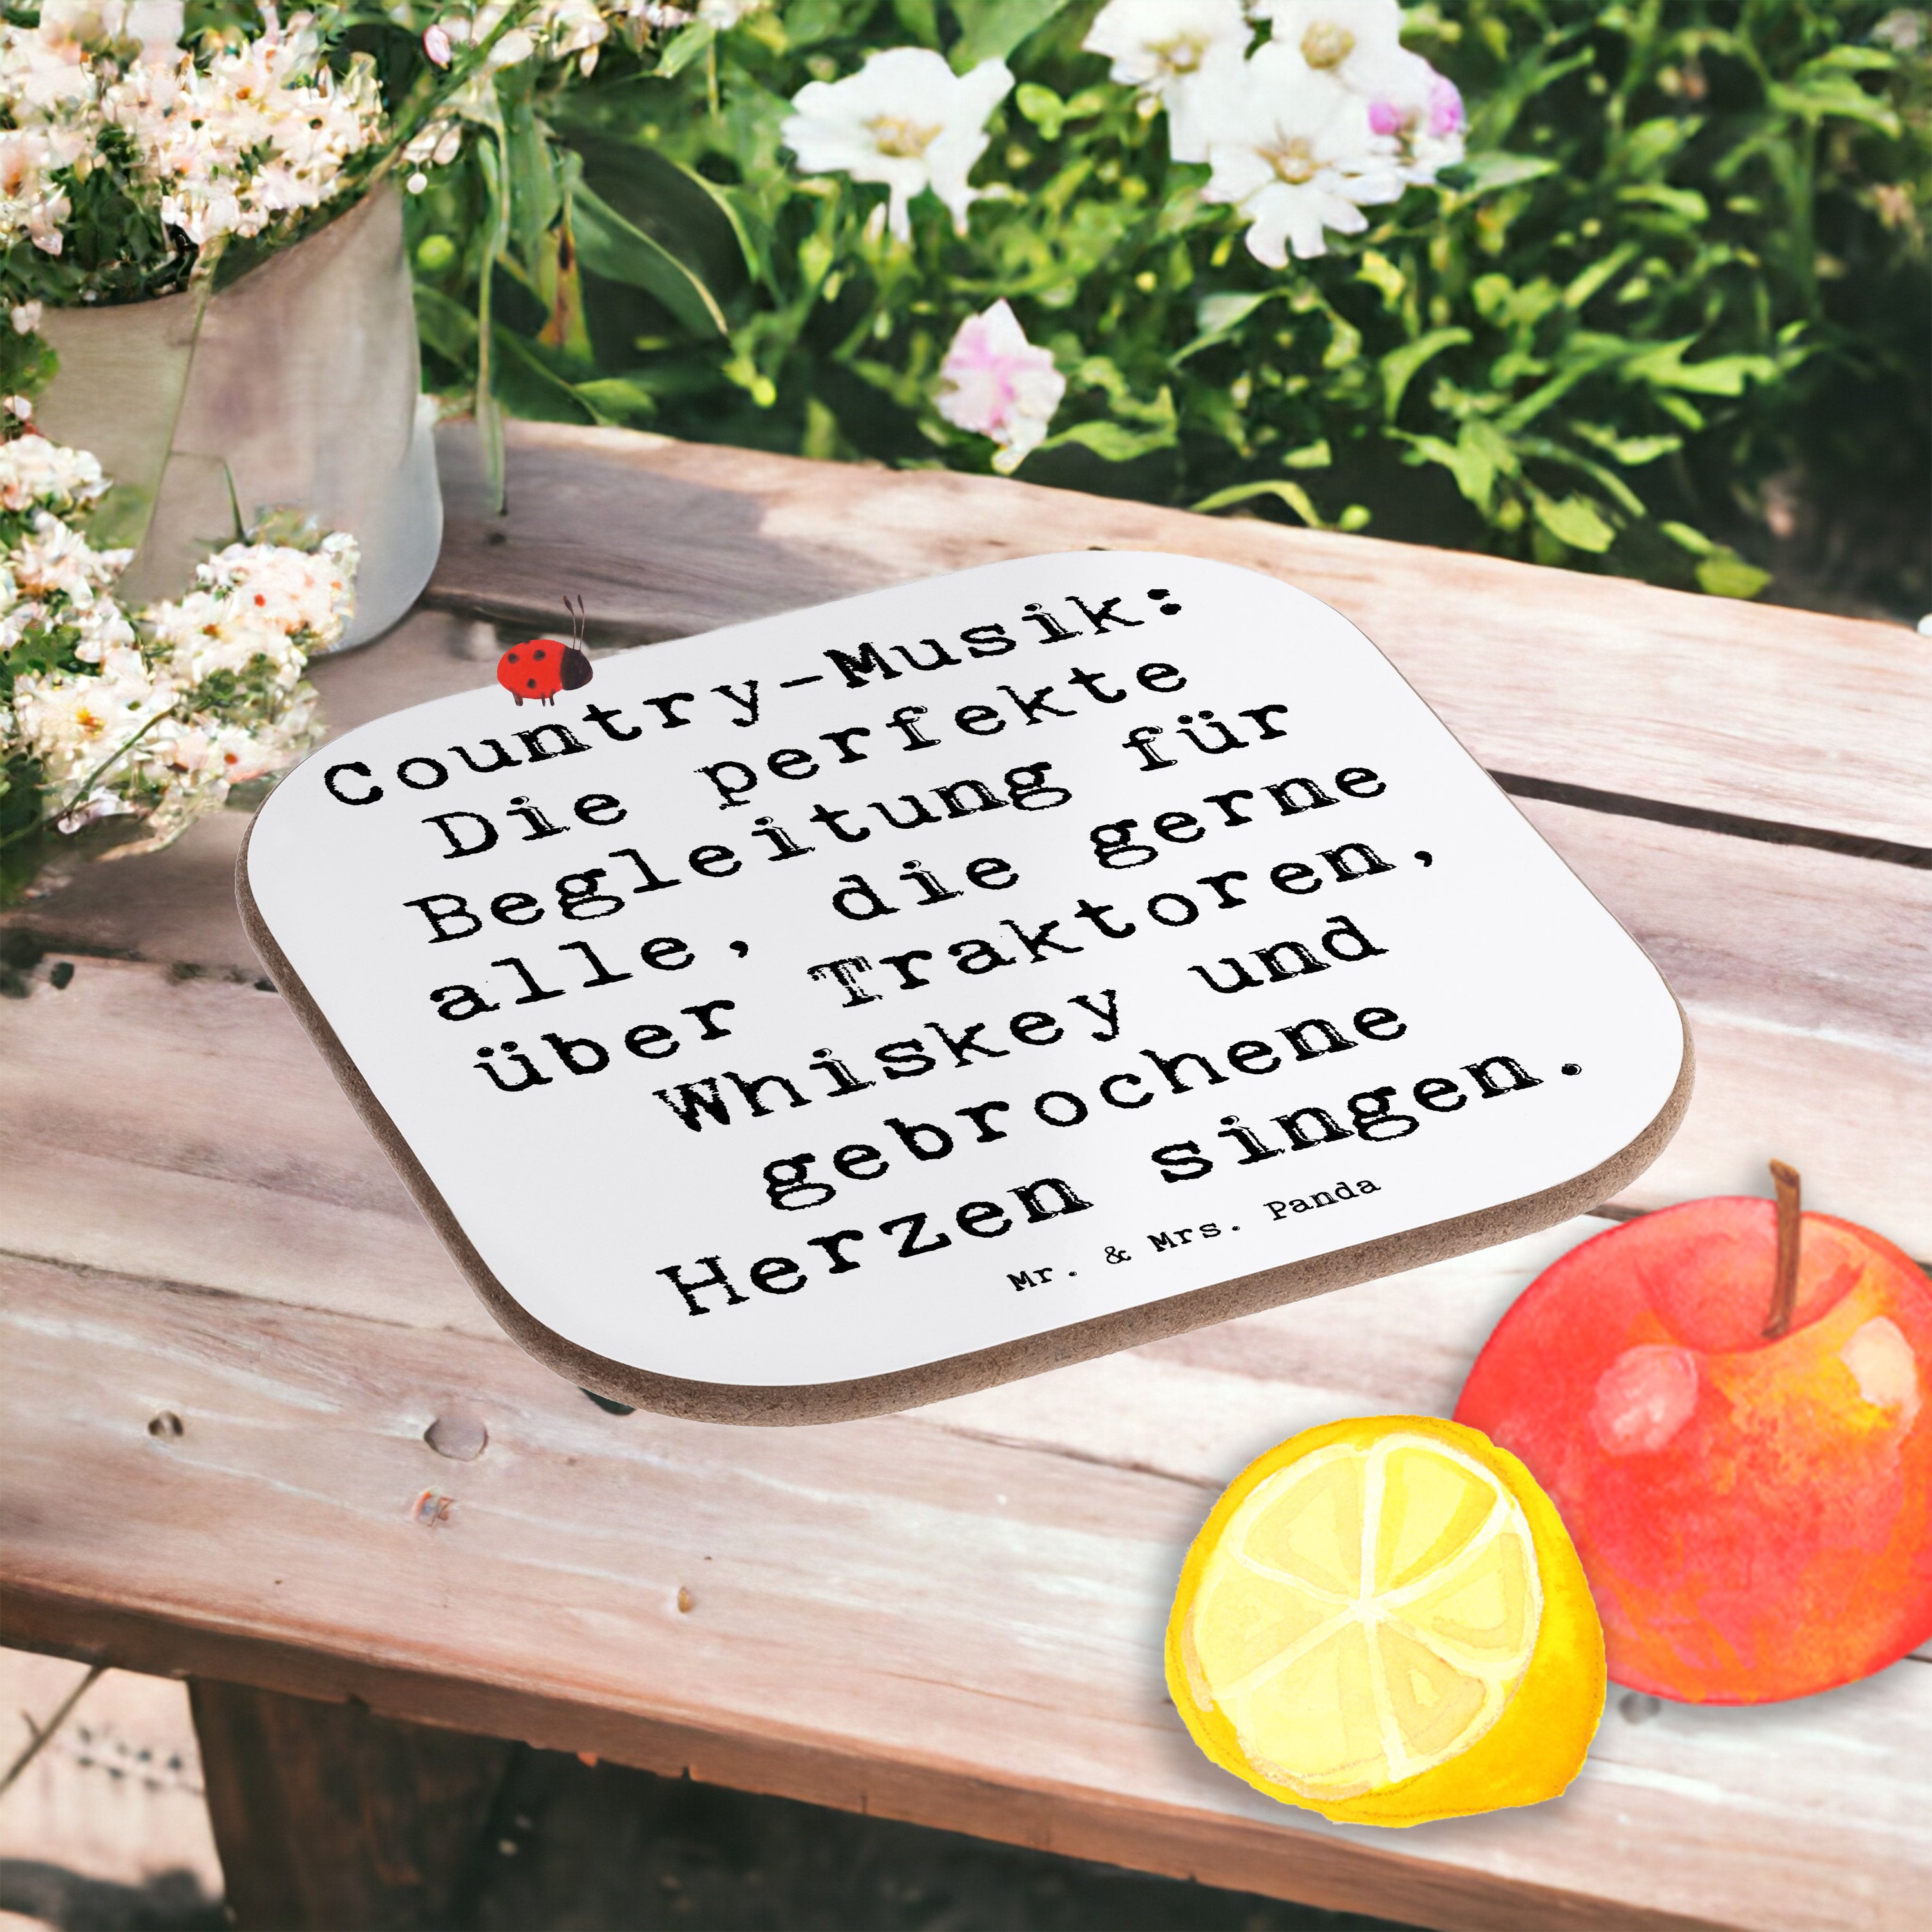 Country-Musik:
Die perfekte
Begleitung für
alle, die gerne
über Traktoren,
Whiskey und
gebrochene
Herzen singen.
Mr. & Mrs. Panda